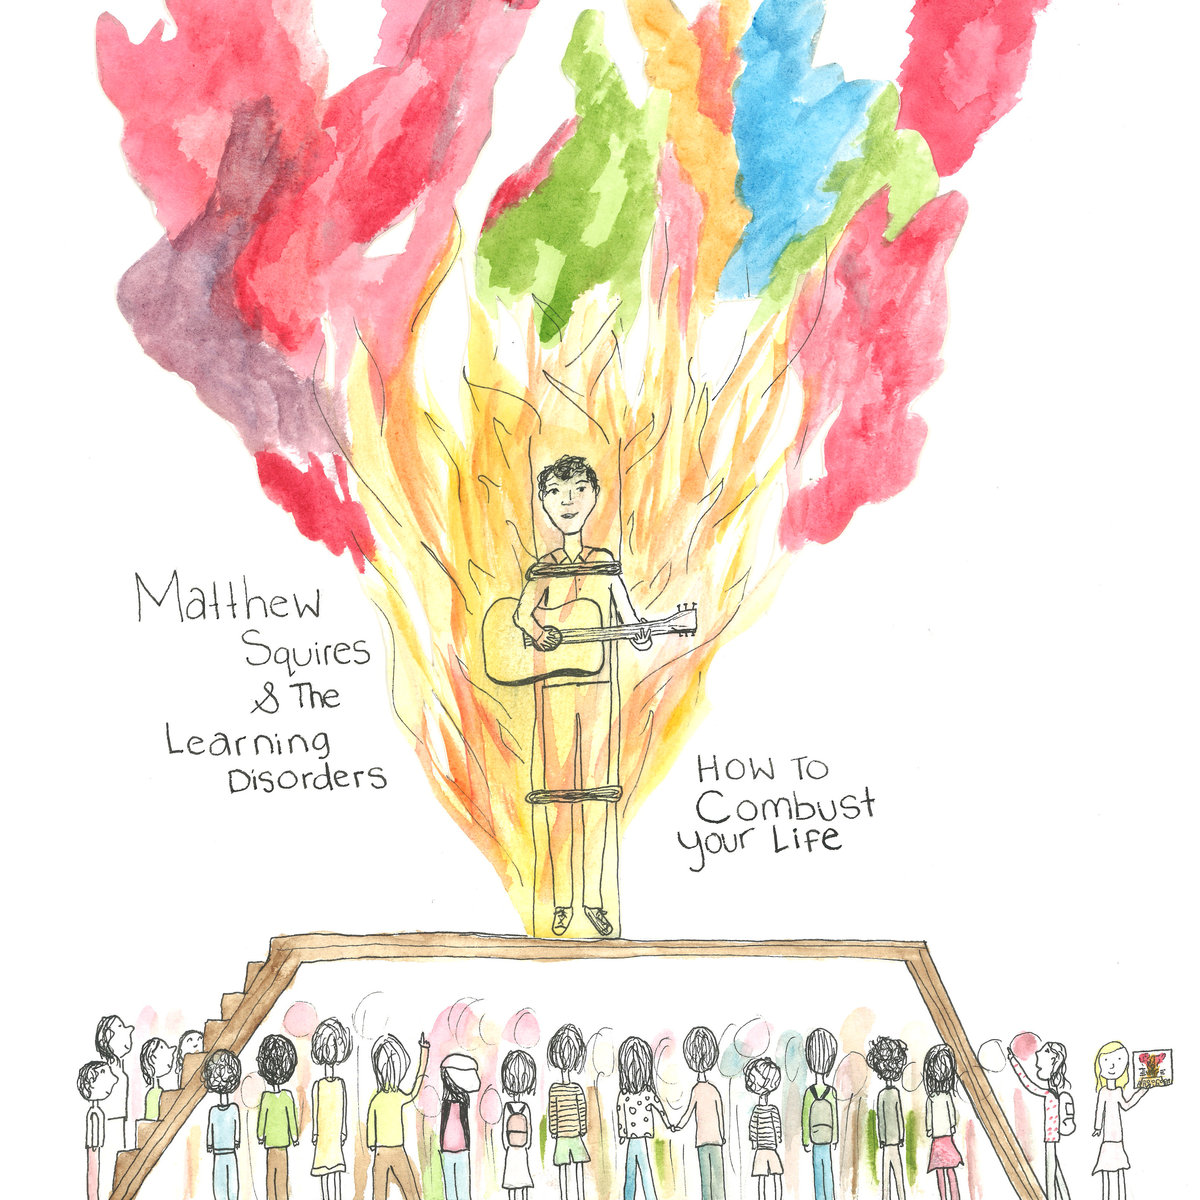 Matthew
Squires
& The
Learning
Disorders
How To
Combust
your Life